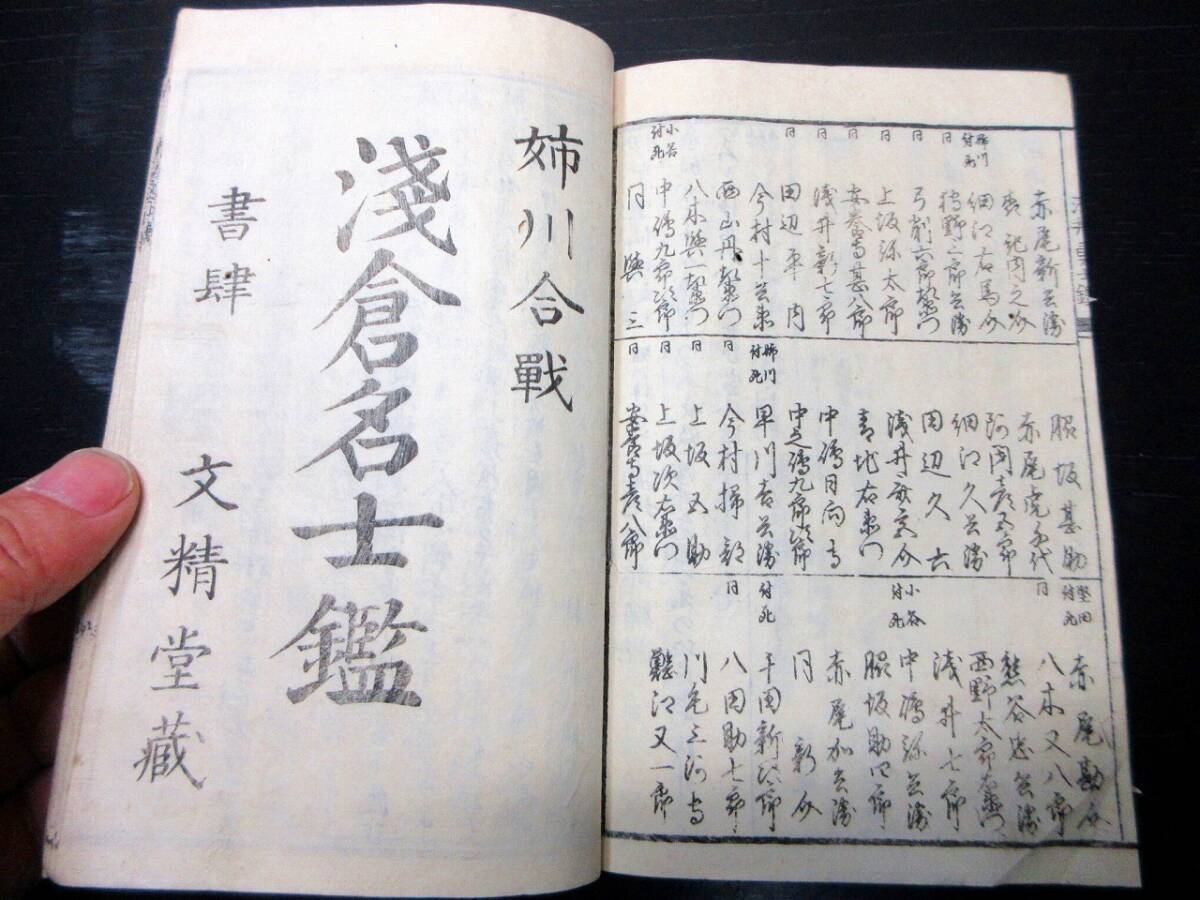 赤尾新兵衛
細江右馬介
討死
弓削六郎左衛門
上坂弥太郎
安養寺甚八郎
浅井新七郎
田辺平内
今村十兵衛
西山丹左衛門
八木與一左衛門
小谷
討死
中嶋九郎次郎
同與三
脇坂甚助
赤尾虎千代
細江久兵衛
田辺久六
青地右衛門
中嶋日向守
中之嶋九郎次郎
姉川
討死
早川吉兵衛
今村掃部
上坂五助
上坂次右衛門
安養寺彦八郎
堅田
討死
赤尾勘介
八木又八郎
熊谷忠兵衛
西野太郎左衛門
浅井七郎
小谷
討死
中嶋弥兵衛
脇坂助四郎
赤尾加兵衛
同新介
討死
千田新次郎
八田助七郎
川毛三河守
難江又一郎
姉川合戰
淺倉名士鑑
書肆
文精堂藏